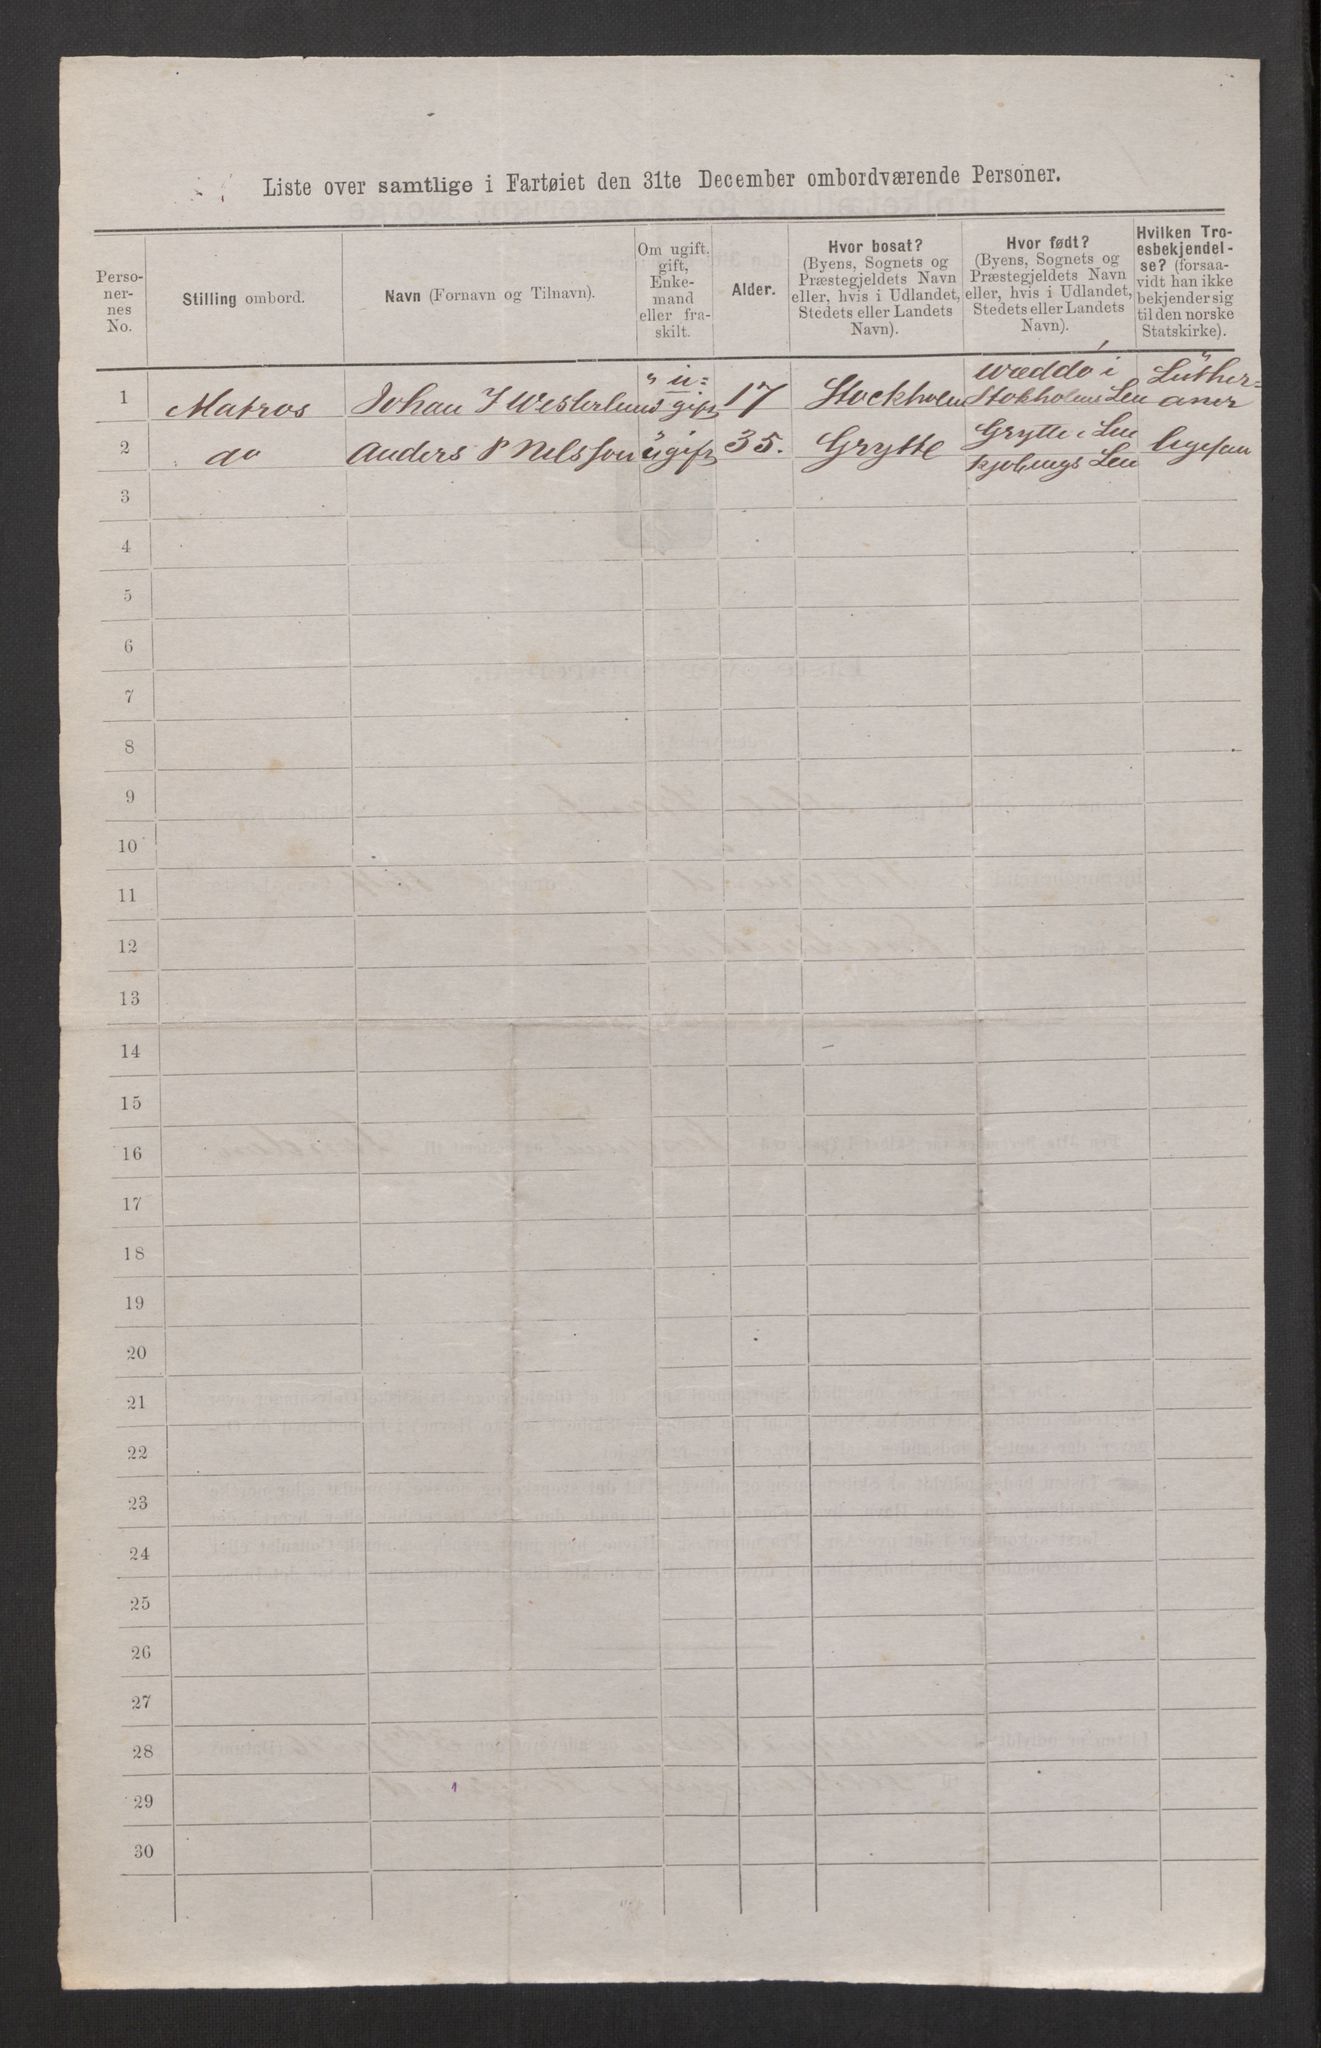 Liste over samtlige i Fartøiet den 31te December ombordværende Personer.
Perso-
ner-
nes
No.
Stilling ombord.
Navn (Fornavn og Tilnavn).
Om ugift,
gift,
Enke-
mand
eller fra-
skilt.
Alder.
Hvor bosat?
(Byens, Sognets og
Præstegjeldets Navn
eller, hvis i Udlandet,
Stedets eller Landets
Navn).
Hvor født?
(Byens, Sognets og
Præstegjeldets Navn
eller, hvis i Udlandet,
Stedets eller Landets
Navn).
Hvilken Tro-
esbekjendel-
se? (forsaa-
vidt han ikke
bekjender sig
til den norske
Statskirke).
1 Matros Johan Westerlund u= gift 17 Stockholm Wæddø i Stokholms Len Luther= aner
2 do Anders P Nelsson ugift 35. Grytte Grytte i Lin kjobings Len
3
4
5
6
7
8
9
10
11
12
13
14
15
16
17
18
19
20
21
22
23
24
25
26
27
28
29
30